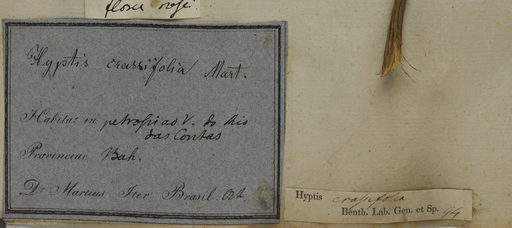 flores rosei
Hyptis crassifolia Mart.
Habitat in petrosis ad V. do Rio
das Contas
Provinciae Bah.
Dr Martius Iter Brasil. Oct
Hyptis crassifolia
Benth. Lab. Gen. et Sp.